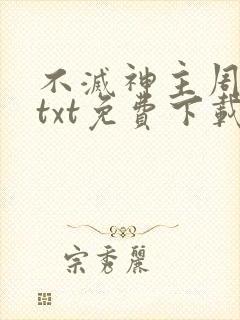 不滅神主周
txt免費下載
宗秀麗